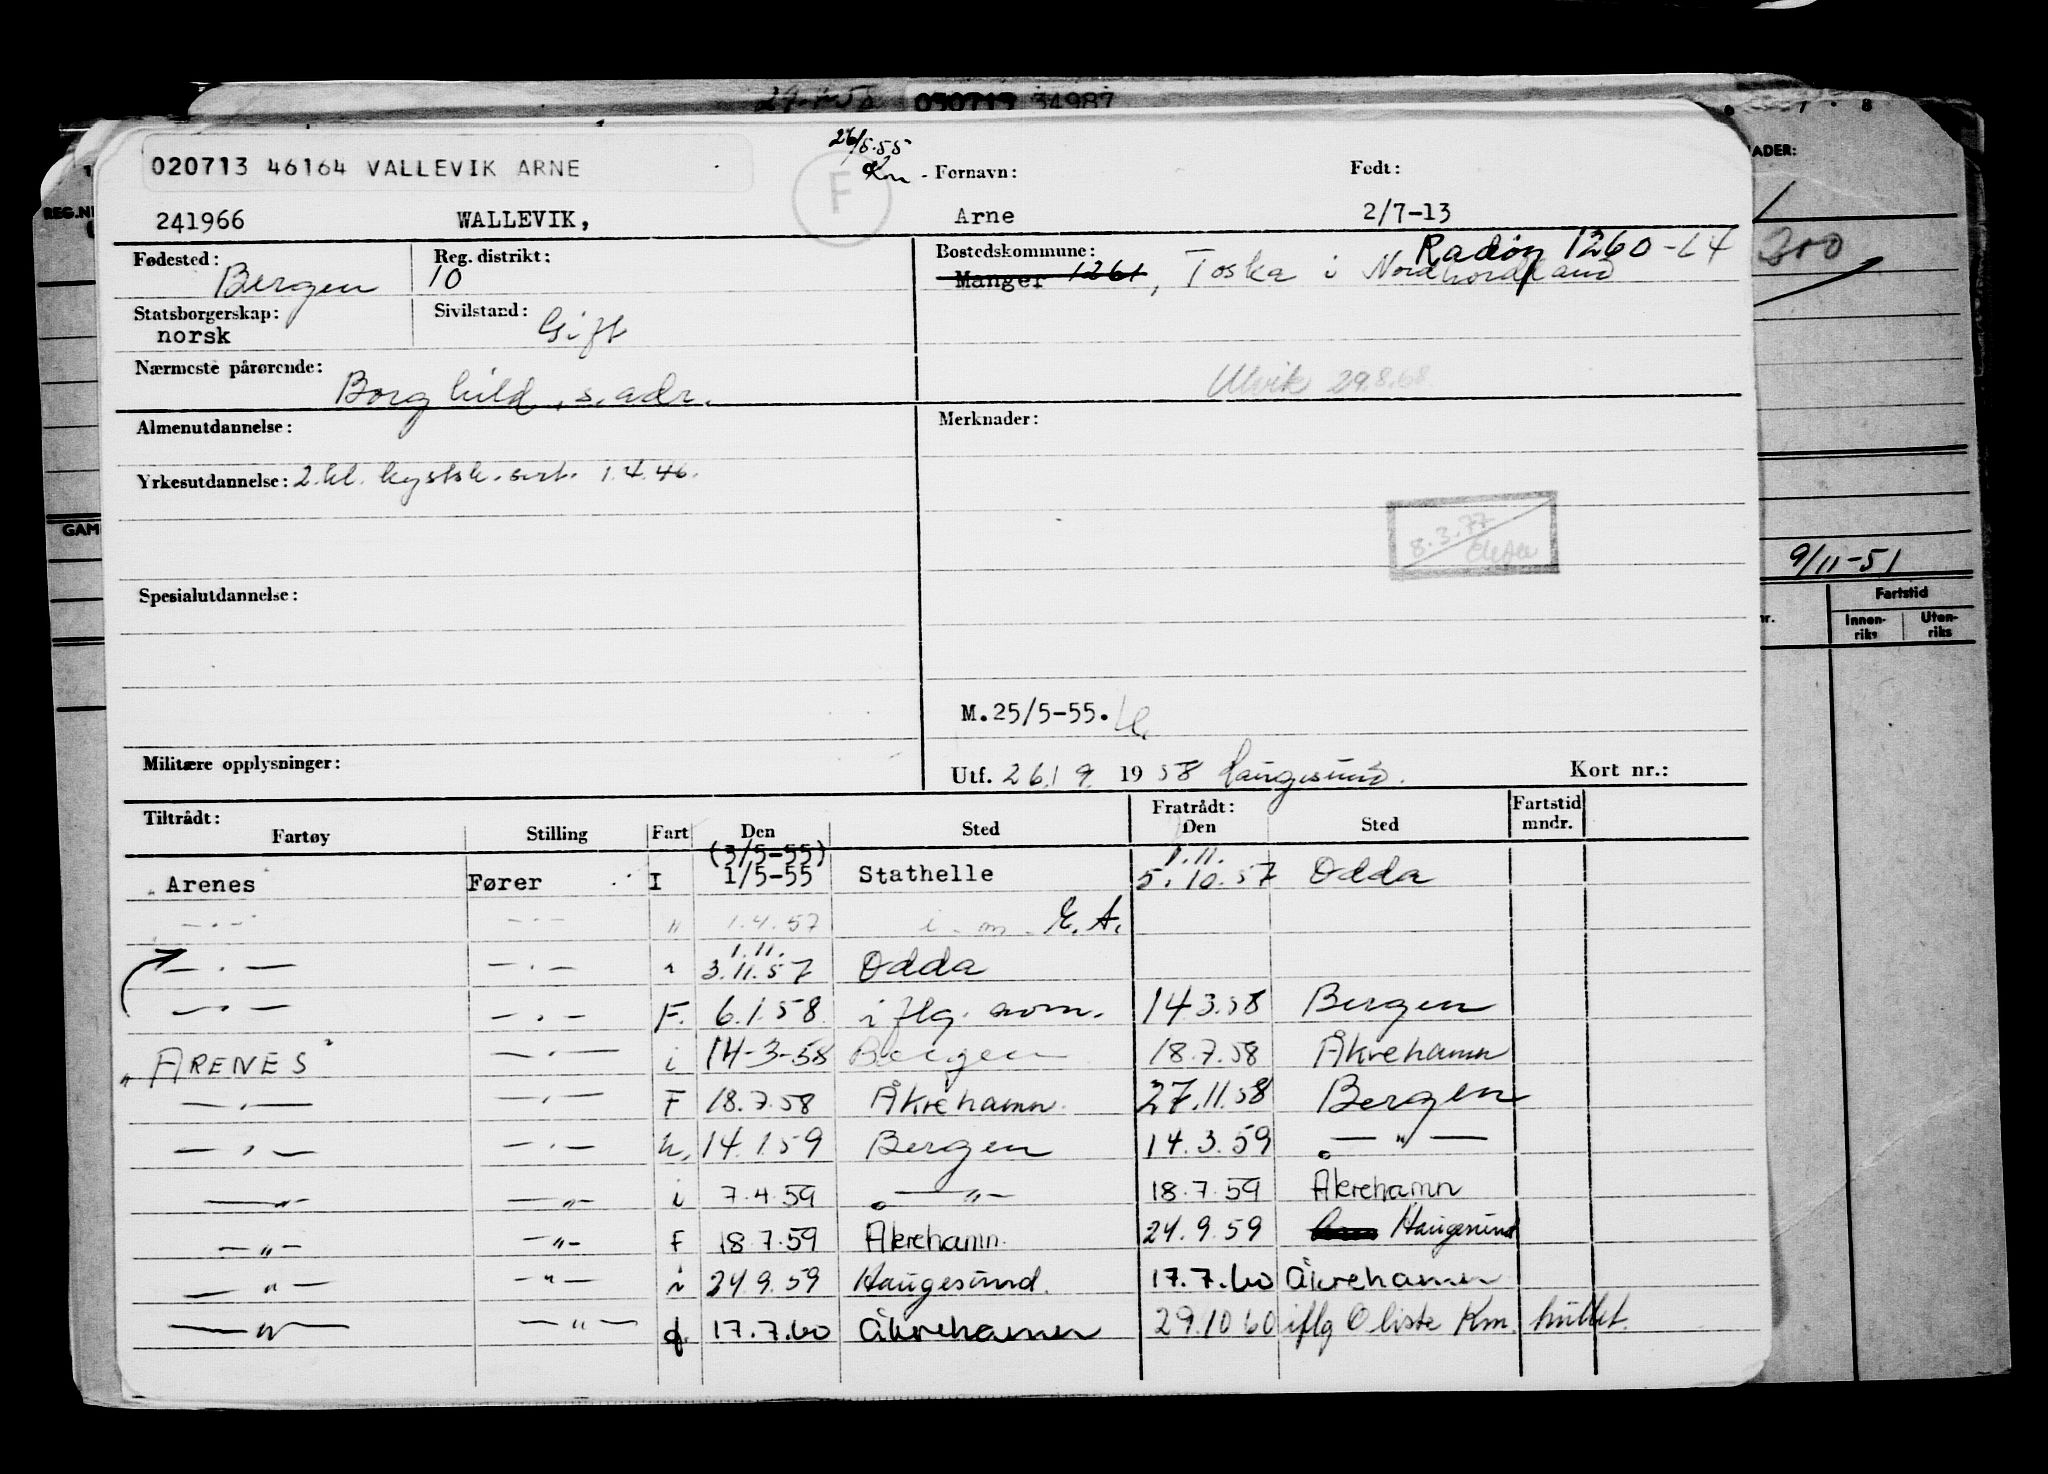 29-7-58 030713 34987
26/5.55
020713 46164 VALLEVIK ARNE F Kon - Fornavn: Født:
241966 WALLEVIK, Arne 2/7-13
Fødested: Bergen Reg. distrikt: 10 Bostedskommune: Manger 1261, Toska i Nordhordland Radøy 1260-64
Statsborgerskap: norsk Sivilstand: Gift
Nærmeste pårørende: Borghild, s. adr. Ulvik 29.8.68
Almenutdannelse: Merknader:
Yrkesutdannelse: 2. kl. kystsk. sert. 1.4.46.
8.3.77
Spesialutdannelse:
M.25/5-55.
Militære opplysninger: Utf. 26/9 1958 Haugesund. Kort nr.:
Tiltrådt: Fratrådt: Fartstid
Fartøy Stilling Fart Den Sted Den Sted mndr.
(3/5-55) 1.11.
Arenes Fører I 1/5-55 Stathelle 5.10.57 Odda
- " - - " - " 1.4.57 i. m. E. A.
1.11.
- " - - " - " 3.11.57 Odda
- " - - " - F. 6.1.58 iflg. nom. 14.3.58 Bergen
"ARENES" - " - i 14-3-58 Bergen 18.7.58 Åkrehamn
- " - - " - F 18.7.58 Åkrehamn 27.11.58 Bergen
- " - - " - n. 14.1.59 Bergen 14.3.59 - " -
- " - - " - i 7.4.59 - " - 18.7.59 Åkrehamn
- " - - " - F 18.7.59 Åkrehamn 24.9.59 Haugesund
- " - - " - i 24.9.59 Haugesund. 17.7.60 Åkrehamn
- " - - " - f. 17.7.60 Åkrehamn 29.10.60 iflg O liste Km. hullet.
REG.NR
GAM
7 . 8
ADER:
300
9/11-51
Fartstid
nr. Innen-riks Uten-riks